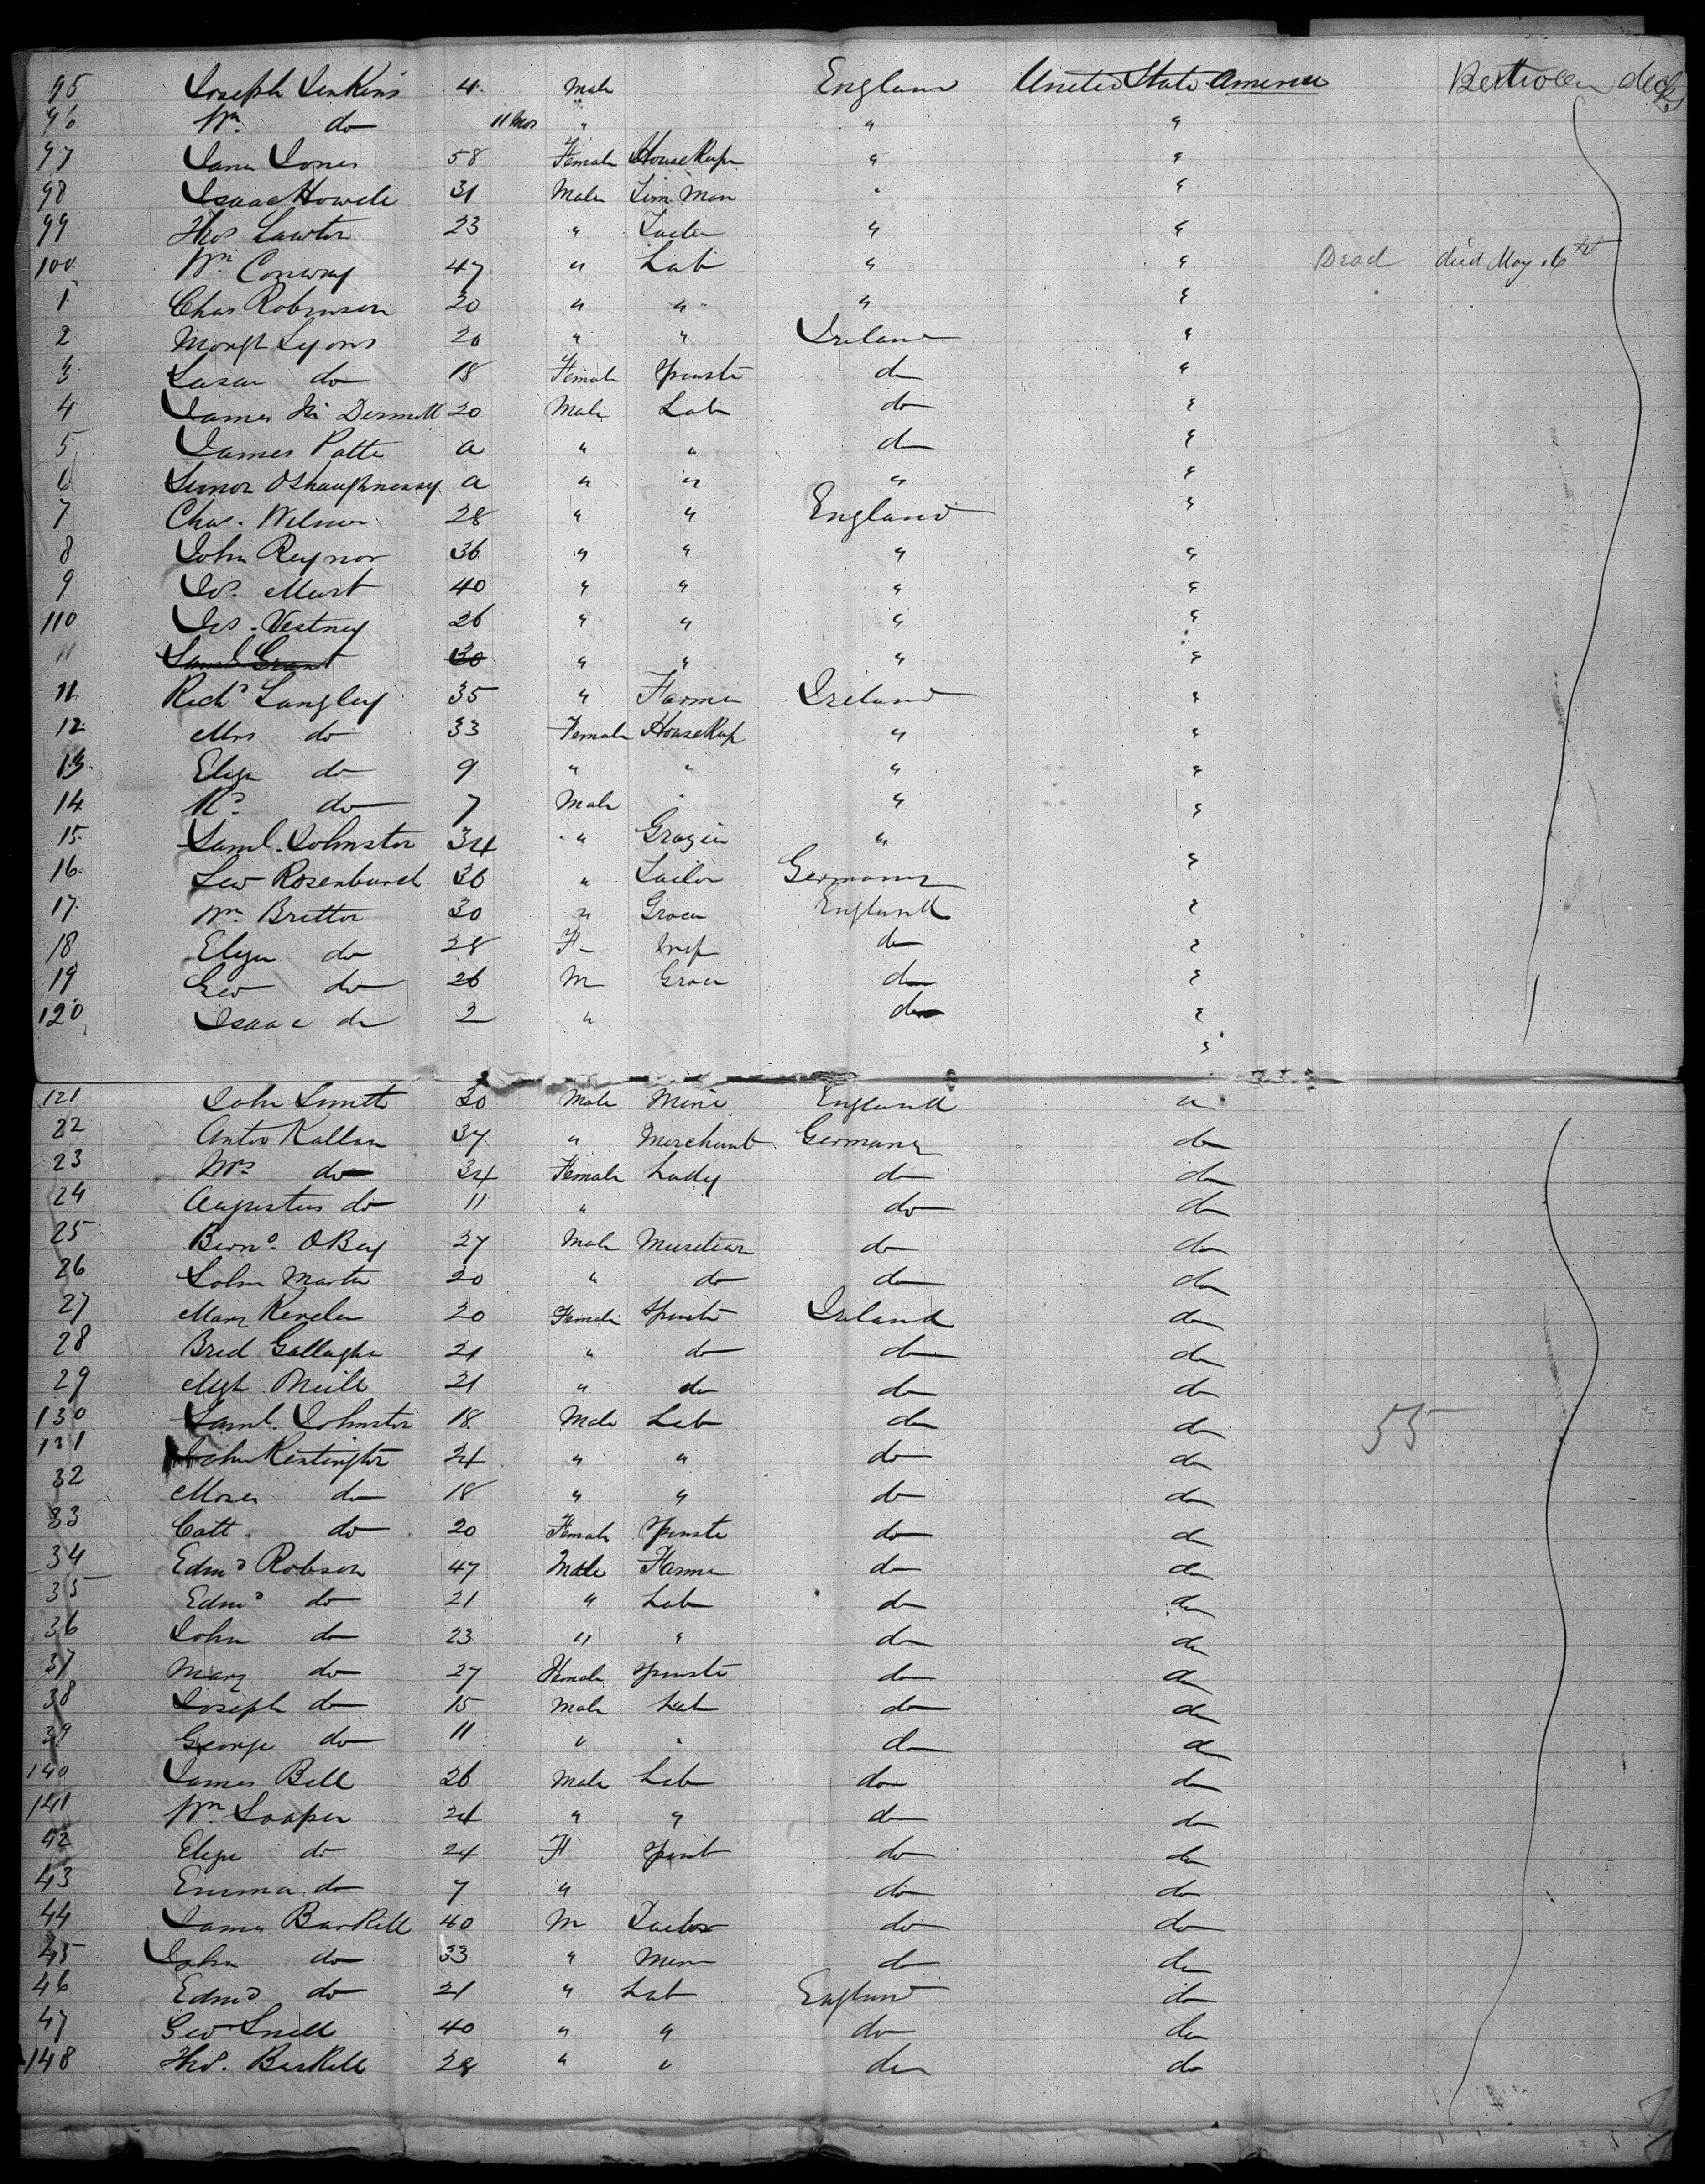 95 Joseph Jenkins 4 Male England United State America Bettween decks
96 Wm do 11 Mos " " "
97 Jane Jones 58 Female HouseKepr " "
98 Isaac Howell 31 Male " "
99 Thos Lawton 23 " " "
100 Wm Conway 47 " Lab " " Dead died May 16th
1 Chas Robinson 20 " " " "
2 Lyons 20 " " Ireland "
3 Susan do 18 Female Spinste do "
4 James Mc Dermott 20 Male Lab do "
5 James Patte a " " do "
6 O'Shaughnessy a " " " "
7 Chas. Wilmer 28 " " England "
8 John Reynor 36 " " " "
9 Jos. Murt 40 " " " "
110 Jos. Vestney 26 " " " "
11 Saml Grant 30 " " " "
11 Richd Langley 35 " Farmer Ireland "
12 Mrs do 33 Female HouseKep " "
13 Eliza do 9 " " " "
14 Rd do 7 Male " " "
15 Saml. Johnston 34 " Grazier " "
16 Lew 36 " Tailor Germany "
17 Wm Britton 30 " Grocer England "
18 Eliza do 28 F do "
19 Geo do 26 M Grocer do "
120 Isaac do 2 " do "
"
121 John Smith 30 Male Mine England "
22 Anto Kallan 37 " Merchant Germany do
23 Mrs do 34 Female Lady do do
24 Augustus do 11 " do do
25 Bernd. OBey 27 Male Musician do do
26 John Martin 20 " do do do
27 Mary 20 Female Spinste Ireland do
28 Brid Gallaghe 21 " do do do
29 Mgt Neill 21 " do do do
130 Saml. Johnston 18 Male Lab do do 55
131 John Kentington 24 " " do do
32 Moses do 18 " " do do
33 Cath. do 20 Female Spinste do do
34 Edmd Robson 47 Male Farmer do do
35 Edmd do 21 " Lab do do
36 John do 23 " " do do
37 Mary do 27 Female Spinste do do
38 Joseph do 15 Male Lab do do
39 George do 11 " " do do
140 James Bell 26 Male Lab do do
141 Wm Soaper 24 " " do do
42 Eliza do 24 F Spinst do do
43 Emma do 7 " do do
44 James BarKell 40 M Tailor do do
45 John do 33 " Miner do do
46 Edmd do 21 " Lab England do
47 Geo Snell 40 " " do do
148 Thos. BarKell 28 " " do do